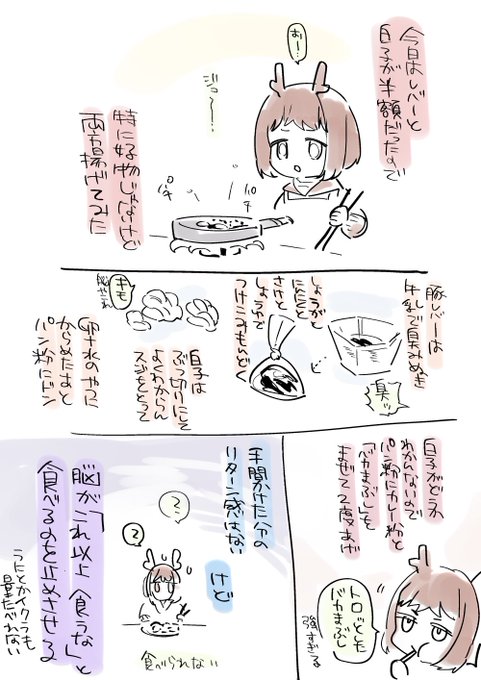 今日はレバーと
白子が半額だったので
おー…
ジュ〜〜…
特に好物じゃないけど
両方揚げてみた
パチ
パチ
豚レバーは
牛乳で臭みぬき
臭ッ
しょうがと
にんにくと
さけと
しょうゆで
つけこみもんどく
ピ
キモ
脳やこれ
白子は
ぶつ切りにして
よくわからん
スジをとって
卵と水のやつに
からめたあと
パン粉にドン
白子がどうか
わかんないので
パン粉にカレー粉と
「バカまぶし」も
まぜて2度あげ
トロッとした
バカまぶし
強すぎる
手間かけた分の
リターン感はない
けど
?
?
食べられない
脳が「これ以上食うな」と
食べるのを止めさせる
うにとかイクラも
量たべれない